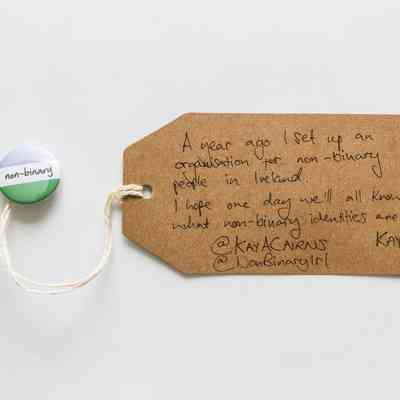 non-binary
A year ago I set up an
organisation for non-binary
people in Ireland.
I hope one day we'll all know
what non-binary identities are
KAY
@KAYACAIRNS
@NonBinaryIrl